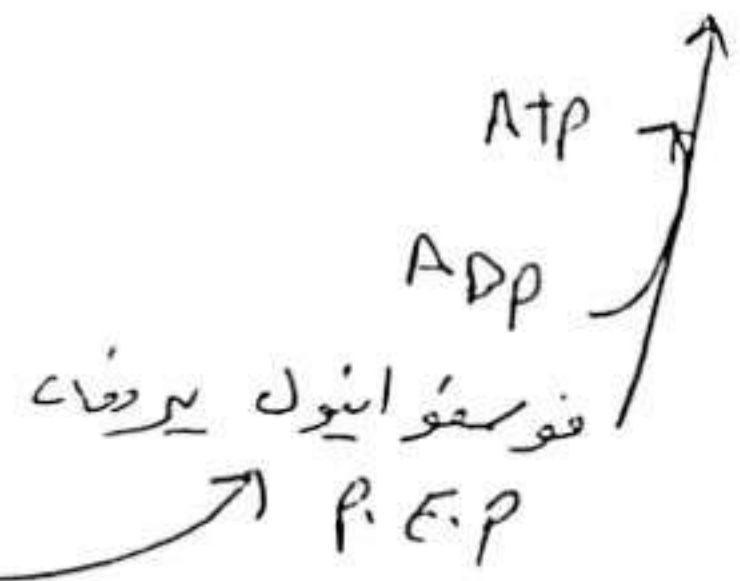 ATP
ADP
فوسفو اينول بيروفات
P.E.P